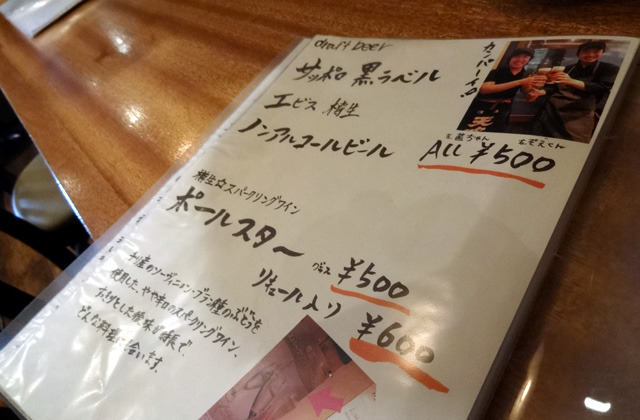 draft beer
カンパーイ!!
サッポロ 黒ラベル
エビス 樽生
ノンアルコールビール
ALL ¥500
樽生☆スパークリングワイン
ポールスター
グラス ¥500
リキュール入り ¥600
チリ産のソーヴィニョン・ブラン種のぶどうを
使用した、やや辛口のスパークリングワイン。
すっきりした後味が特長で、
どんな料理にも合います。